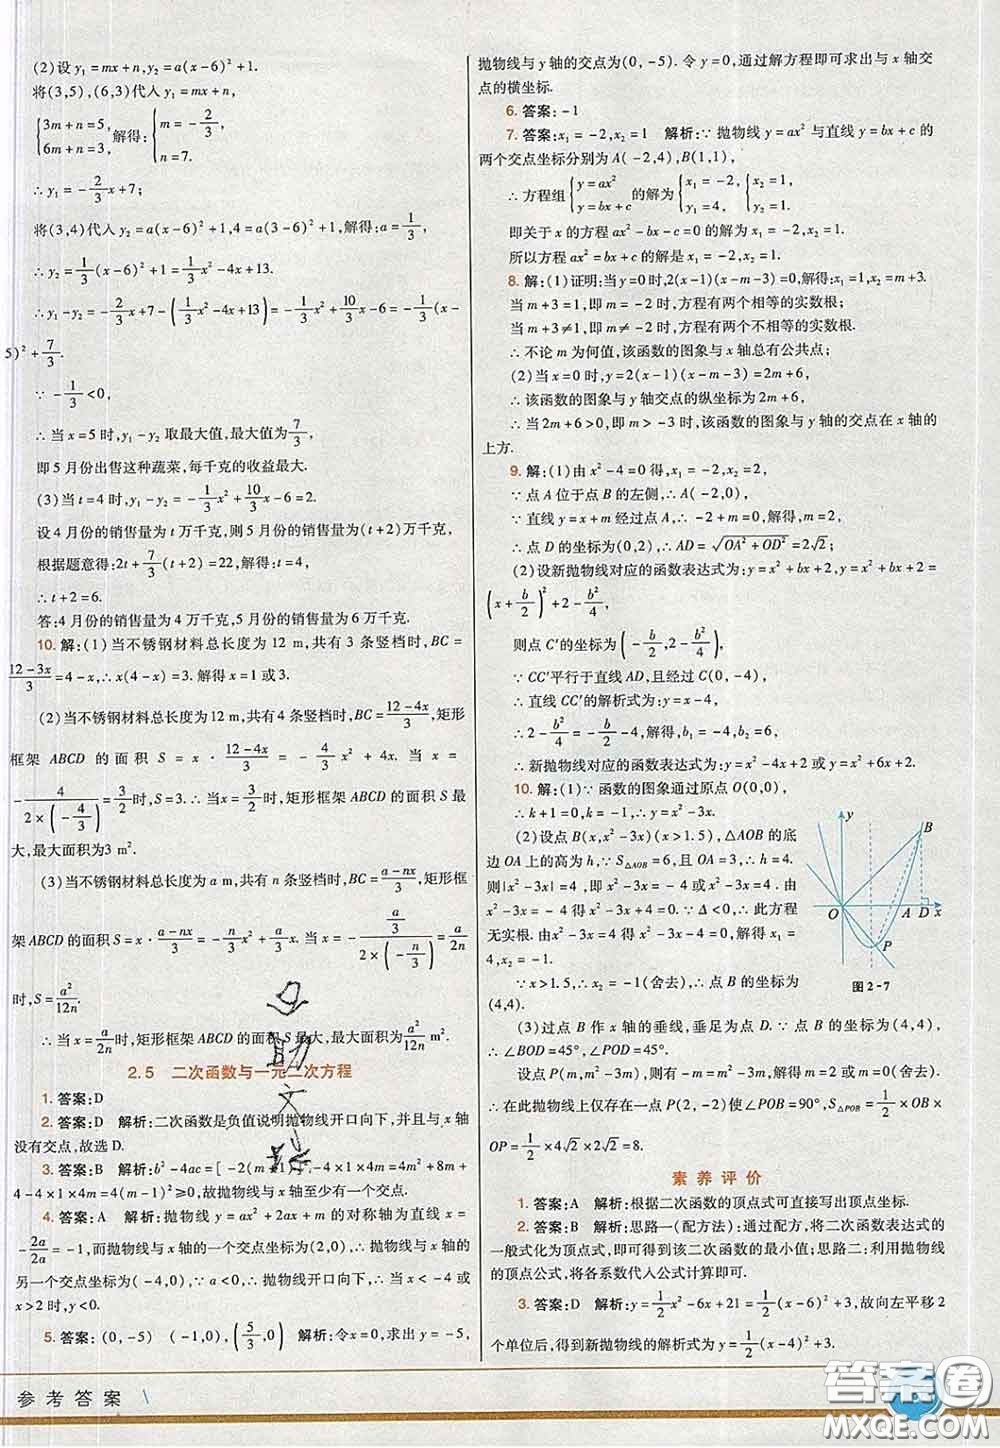 (2)设 y₁=mx+n,y₂=a(x-6)²+1.
将(3,5),(6,3)代入 y₁=mx+n,
{3m+n=5, 6m+n=3, 解得:{m=-2/3, n=7.
∴y₁=-2/3x+7;
将(3,4)代入 y₂=a(x-6)²+1,4=a(3-6)²+1,解得:a=1/3,
∴y₂=1/3(x-6)²+1=1/3x²-4x+13.
∴y₁-y₂=-2/3x+7-(1/3x²-4x+13)=-1/3x²+10/3x-6=-1/3(x-
5)²+7/3.
∵-1/3<0,
∴当 x=5 时,y₁-y₂ 取最大值,最大值为7/3,
即 5 月份出售这种蔬菜,每千克的收益最大.
(3)当 t=4 时,y₁-y₂=-1/3x²+10/3x-6=2.
设 4 月份的销售量为 t 万千克,则 5 月份的销售量为(t+2)万千克,
根据题意得:2t+7/3(t+2)=22,解得:t=4,
∴t+2=6.
答:4 月份的销售量为 4 万千克,5 月份的销售量为 6 万千克.
10. 解:(1)当不锈钢材料总长度为 12 m,共有 3 条竖档时,BC=
12-3x/3=4-x,∴x(4-x)=3.解得 x=1 或 3.
(2)当不锈钢材料总长度为 12 m,共有 4 条竖档时,BC=12-4x/3,矩形
框架 ABCD 的面积 S=x·12-4x/3=-4/3x²+4x. 当 x=
-4/(2×(-4/3))=3/2时,S=3.∴当x=3/2时,矩形框架 ABCD 的面积 S 最
大,最大面积为3 m².
(3)当不锈钢材料总长度为 a m,共有 n 条竖档时,BC=a-nx/3,矩形框
架 ABCD 的面积 S=x·a-nx/3=-n/3x²+a/3x. 当 x=-(a/3)/(2×(-n/3))=a/2n
时,S=a²/12n.
∴当 x=a/2n时,矩形框架 ABCD 的面积 S 最大,最大面积为a²/12n m².
2.5 二次函数与一元二次方程
1. 答案:D
2. 答案:D 解析:二次函数是负值说明抛物线开口向下,并且与 x 轴
没有交点,故选 D.
3. 答案:B 解析:b²-4ac=[-2(m+1)]²-4×1×4m=4m²+8m+
4-4×1×4m=4(m-1)²≥0,故抛物线与 x 轴至少有一个交点.
4. 答案:A 解析:抛物线 y=ax²+2ax+m 的对称轴为直线 x=
-2a/2a=-1,而抛物线与 x 轴的一个交点坐标为(2,0),∴抛物线与 x 轴的
另一个交点坐标为(-4,0),∵a<0,∴抛物线开口向下,∴当 x<-4 或
x>2 时,y<0.
5. 答案:(0,-5) (-1,0),(5/3,0) 解析:令 x=0,求出 y=-5,
抛物线与 y 轴的交点为(0,-5).令 y=0,通过解方程即可求出与 x 轴交
点的横坐标.
6. 答案:-1
7. 答案:x₁=-2,x₂=1 解析:∵抛物线 y=ax² 与直线 y=bx+c 的
两个交点坐标分别为 A(-2,4),B(1,1),
∴方程组{y=ax² y=bx+c 的解为{x₁=-2, y₁=4, {x₂=1, y₂=1.
即关于 x 的方程 ax²-bx-c=0 的解为 x₁=-2,x₂=1.
所以方程 ax²=bx+c 的解是 x₁=-2,x₂=1.
8. 解:(1)证明:当 y=0 时,2(x-1)(x-m-3)=0,解得:x₁=1,x₂=m+3.
当 m+3=1,即 m=-2 时,方程有两个相等的实数根;
当 m+3≠1,即 m≠-2 时,方程有两个不相等的实数根.
∴不论 m 为何值,该函数的图象与 x 轴总有公共点;
(2)当 x=0 时,y=2(x-1)(x-m-3)=2m+6,
∴该函数的图象与 y 轴交点的纵坐标为 2m+6,
∴当 2m+6>0,即 m>-3 时,该函数的图象与 y 轴的交点在 x 轴的
上方.
9. 解:(1)由 x²-4=0 得,x₁=-2,x₂=2,
∵点 A 位于点 B 的左侧,∴A(-2,0),
∵直线 y=x+m 经过点 A,∴-2+m=0,解得,m=2,
∴点 D 的坐标为(0,2),∴AD=√(OA²+OD²)=2√2;
(2)设新抛物线对应的函数表达式为:y=x²+bx+2,y=x²+bx+2=
(x+b/2)²+2-b²/4,
则点 C′的坐标为(-b/2,2-b²/4),
∵CC′平行于直线 AD,且经过 C(0,-4),
∴直线 CC′的解析式为:y=x-4,
∴2-b²/4=-b/2-4,解得,b₁=-4,b₂=6,
∴新抛物线对应的函数表达式为:y=x²-4x+2 或 y=x²+6x+2.
10. 解:(1)∵函数的图象通过原点 O(0,0),
∴k+1=0,k=-1,∴y=x²-3x.
(2)设点 B(x,x²-3x)(x>1.5),△AOB 的底
边 OA 上的高为 h,∵S△AOB=6,且 OA=3,∴h=4.
则|x²-3x|=4,即 x²-3x=-4 或 x²-3x=4. 由
x²-3x=-4 得 x²-3x+4=0.∵Δ<0,∴此方程
无实根. 由 x²-3x=4 得 x²-3x-4=0. 解得 x₁=
4,x₂=-1.
∵x>1.5,∴x₂=-1(舍去),∴点 B 的坐标为
(4,4).
y
B
O
A D x
P
图 2-7
(3)过点 B 作 x 轴的垂线,垂足为点 D.∵点 B 的坐标为(4,4),
∴∠BOD=45°,∠POD=45°.
设点 P(m,m²-3m),则 m=-(m²-3m),解得 m=2 或 m=0(舍去).
∴在此抛物线上仅存在一点 P(2,-2)使∠POB=90°,S△POB=1/2×OB×
OP=1/2×4√2×2√2=8.
素养评价
1. 答案:A 解析:根据二次函数的顶点式可直接写出顶点坐标.
2. 答案:B 解析:思路一(配方法):通过配方,将二次函数表达式的
一般式化为顶点式,即可得到该二次函数的最小值;思路二:利用抛物线
的顶点公式,将各系数代入公式计算即可.
3. 答案:D 解析:y=1/2x²-6x+21=1/2(x-6)²+3,故向左平移 2
个单位后,得到新抛物线的解析式为 y=1/2(x-4)²+3.
参考答案
答案圈
MXQE.COM